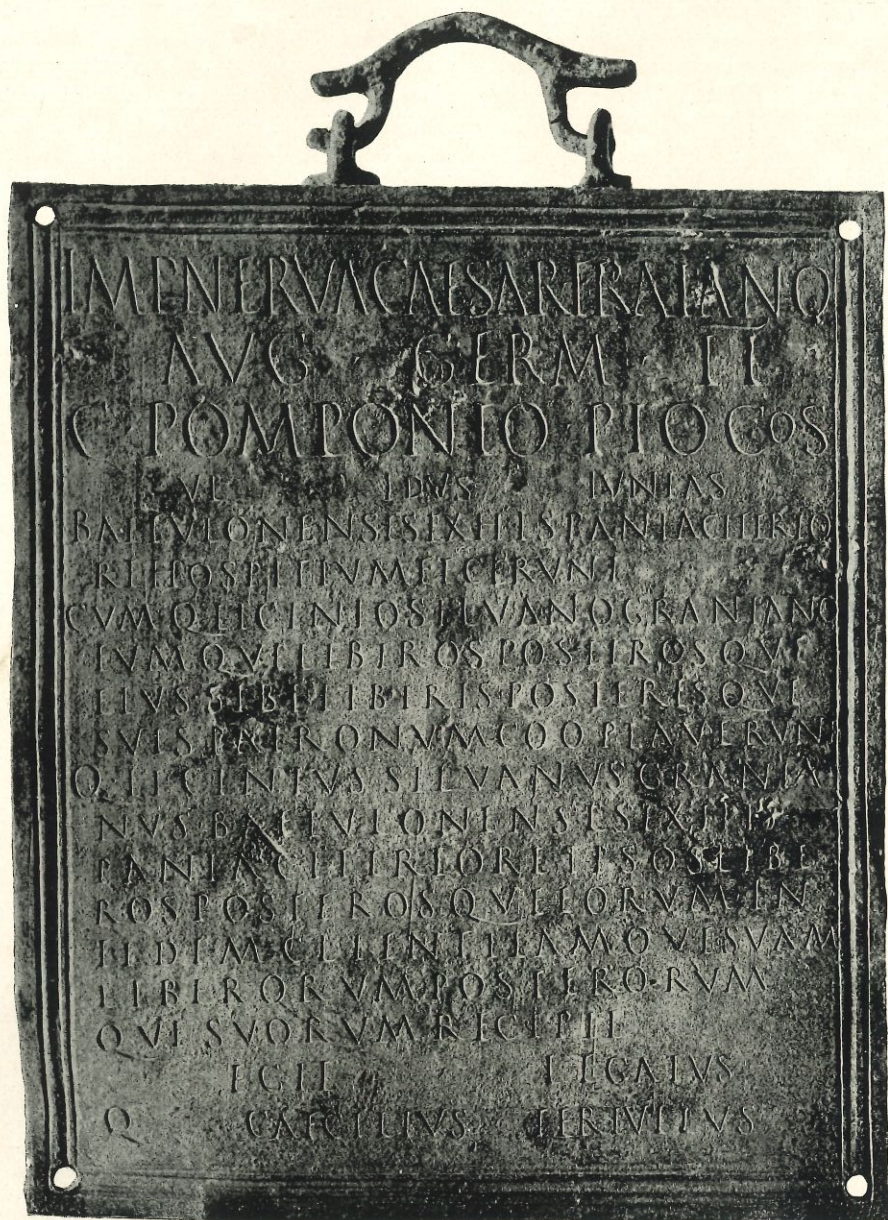 IMP NERVA CAESARE TRAIANO
AVG GERM II
C POMPONIO PIO COS
VI IDVS IVNIAS
BAETVLONENSES EX HISPANIA CITERIO
RE HOSPITIVM FECERVNT
CVM Q LICINIO SILVANO GRANIANO
EVMQVE LIBEROS POSTEROSQVE
EIVS SIBI LIBERIS POSTERISQVE
SVIS PATRONVM COOPTAVERVNT
Q LICINIVS SILVANVS GRANIA
NVS BAETVLONENSES EX HIS
PANIA CITERIORE IPSOS LIBE
ROS POSTEROSQVE EORVM IN
FIDEM CLIENTELAMQVE SVAM
LIBERORVM POSTERORVM
QVE SVORVM RECEPIT
EGIT LEGATVS
Q CAECILIVS TERTVLLVS